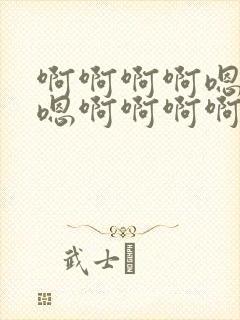 啊啊啊啊嗯
嗯啊啊啊啊
武士